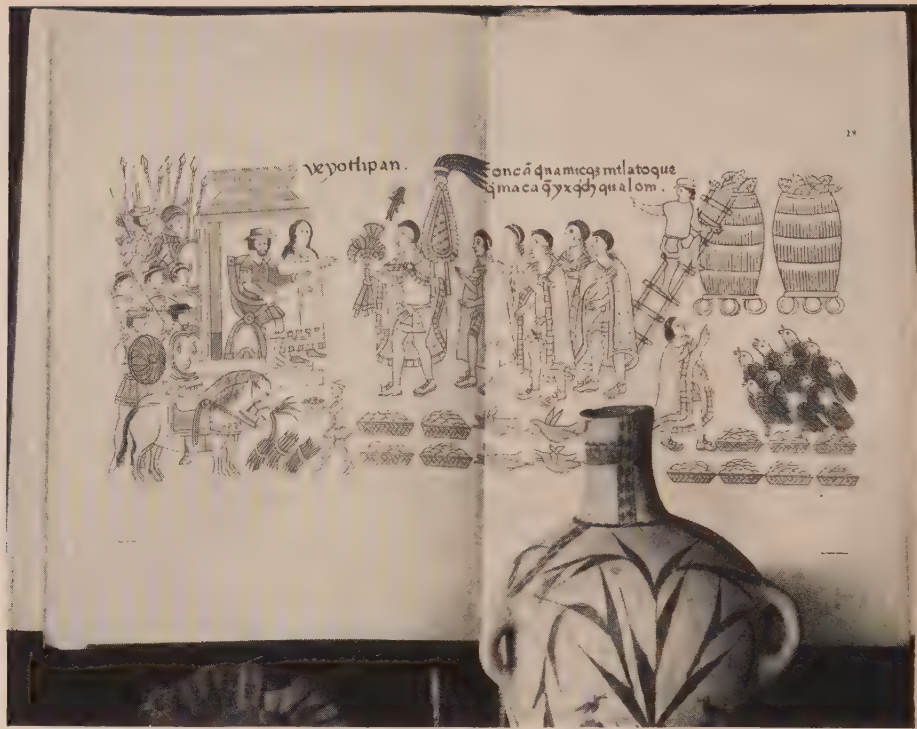 veyotlipan.
oncā q̄namicq̄ȝ intlatoque
q̄maca q̄yxq̄ch qualoni.
29